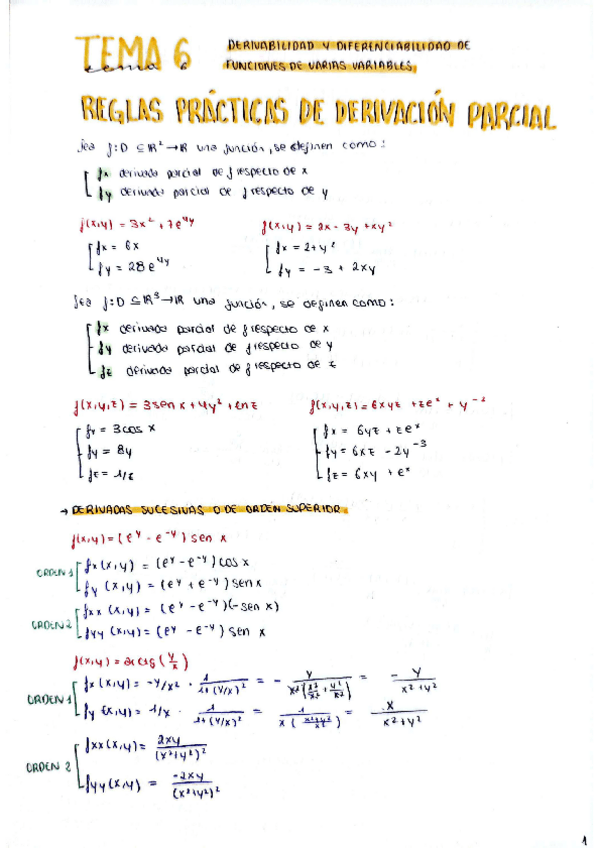 TEMA 6
tema 6
DERIVABILIDAD Y DIFERENCIABILIDAD DE
FUNCIONES DE VARIAS VARIABLES.
REGLAS PRÁCTICAS DE DERIVACIÓN PARCIAL
Sea f: D ⊆ ℝ² → ℝ una función, se definen como:
fx derivada parcial de f respecto de x
fy derivada parcial de f respecto de y
f(x,y) = 3x² + 7e^4y
fx = 6x
fy = 28e^4y
f(x,y) = 2x - 3y + xy²
fx = 2 + y²
fy = -3 + 2xy
Sea f: D ⊆ ℝ³ → ℝ una función, se definen como:
fx derivada parcial de f respecto de x
fy derivada parcial de f respecto de y
fz derivada parcial de f respecto de z
f(x,y,z) = 3sen x + 4y² + ln z
fx = 3cos x
fy = 8y
fz = 1/z
f(x,y,z) = 6xyz + ze^x + y^-2
fx = 6yz + ze^x
fy = 6xz - 2y^-3
fz = 6xy + e^x
→ DERIVADAS SUCESIVAS O DE ORDEN SUPERIOR.
f(x,y) = (e^y - e^-y) sen x
ORDEN 1
fx (x,y) = (e^y - e^-y) cos x
fy (x,y) = (e^y + e^-y) sen x
ORDEN 2
fxx (x,y) = (e^y - e^-y)(-sen x)
fyy (x,y) = (e^y - e^-y) sen x
f(x,y) = arctg (y/x)
ORDEN 1
fx (x,y) = -y/x² · 1/(1+(y/x)²) = - y/(x²(x²/x² + y²/x²)) = - y/(x²+y²)
fy (x,y) = 1/x · 1/(1+(y/x)²) = 1/(x((x²+y²)/x²)) = x/(x²+y²)
ORDEN 2
fxx (x,y) = 2xy/(x²+y²)²
fyy (x,y) = -2xy/(x²+y²)²
1